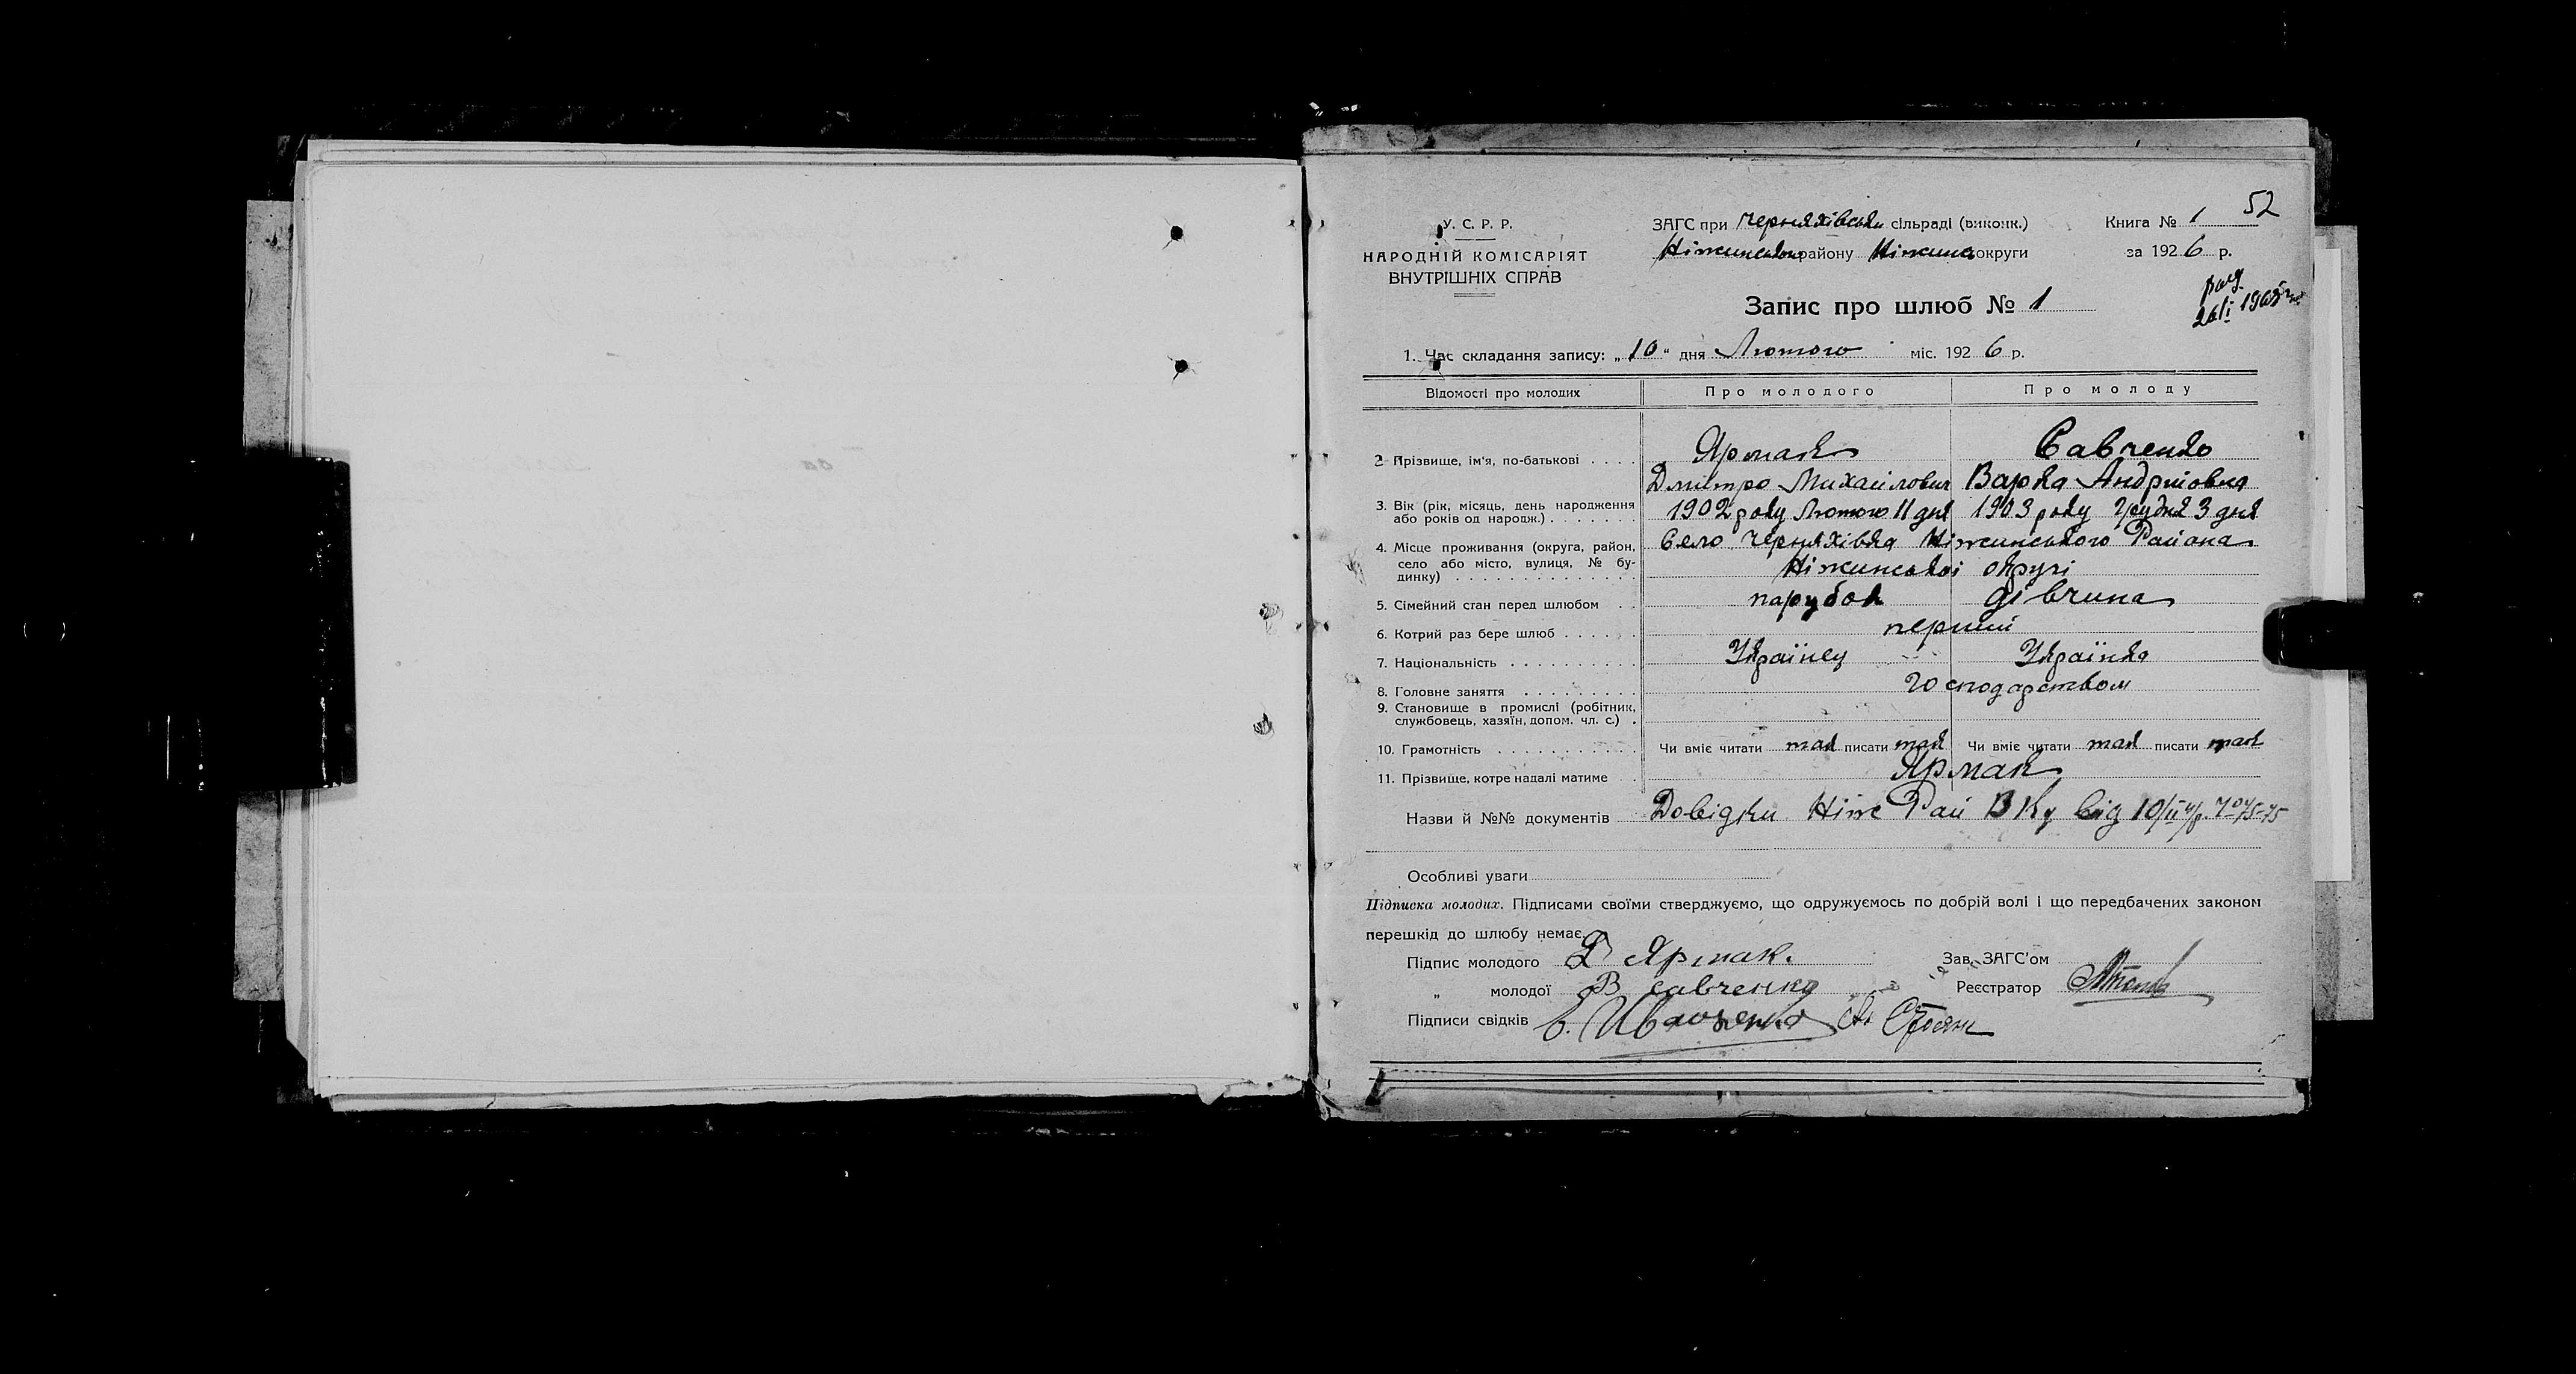 52
У. С. Р. Р.
НАРОДНІЙ КОМІСАРІЯТ
ВНУТРІШНІХ СПРАВ
ЗАГС при Черняхівськ сільраді (виконк.)
Ніжинськ району Ніжинс округи
Книга № 1
за 1926 р.
Запис про шлюб № 1
1. Час складання запису: „10“ дня Лютого міс. 1926 р.
Відомості про молодих Про молодого Про молоду
2. Прізвище, ім'я, по-батькові . . . . Ярмак Савченко
Дмитро Михайлович Варка Андріївна
3. Вік (рік, місяць, день народження або років од народж.) . . . . . . . 1902 року Лютого 11 дня 1903 року Грудня 3 дня
4. Місце проживання (округа, район, село або місто, вулиця, № будинку) . . . . . . . . . . . . . . Село Черняхівка Ніжинського Района
Ніжинської округі
5. Сімейний стан перед шлюбом . . парубок дівчина
6. Котрий раз бере шлюб . . . . . . перший
7. Національність . . . . . . . . . . Українец Українка
8. Головне заняття . . . . . . . . . Господарством
9. Становище в промислі (робітник, службовець, хазяїн, допом. чл. с.) .
10. Грамотність . . . . . . . . . . . Чи вміє читати так писати так Чи вміє читати так писати так
11. Прізвище, котре надалі матиме . Ярмак
Назви й №№ документів Довідки Ніж Рай ВКу від 10/II
Особливі уваги
Підписка молодих. Підписами своїми стверджуємо, що одружуємось по добрій волі і що передбачених законом
перешкід до шлюбу немає.
Підпис молодого Д Ярмак.
Зав. ЗАГС'ом
„ молодої В савченко
Реєстратор
Підписи свідків